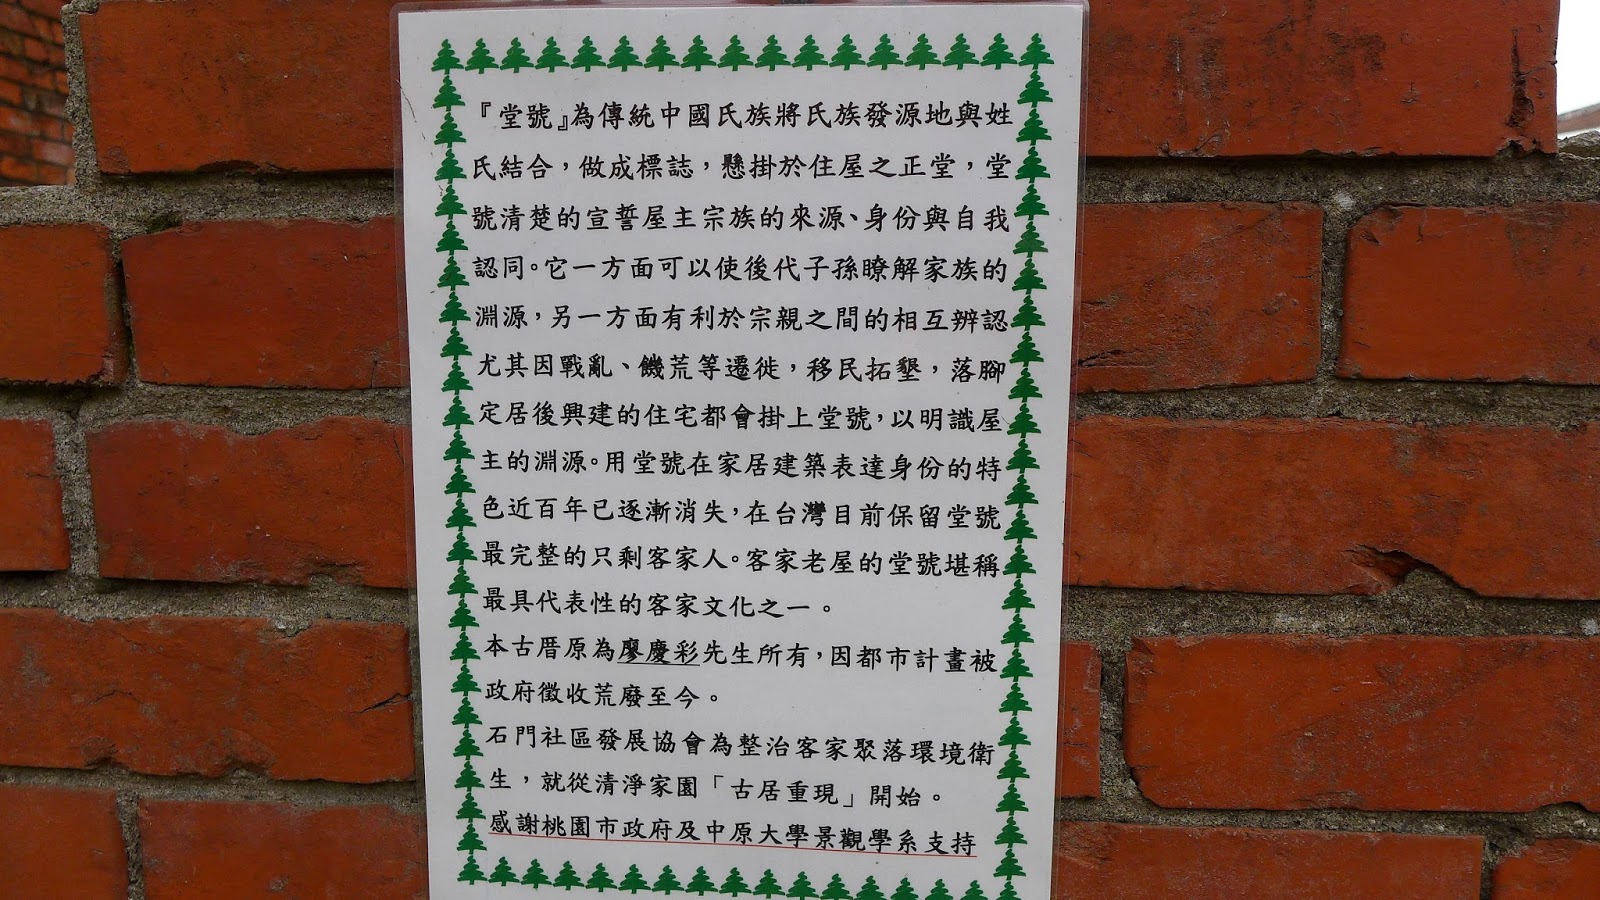 『堂號』為傳統中國氏族將氏族發源地與姓
氏結合，做成標誌，懸掛於住屋之正堂，堂
號清楚的宣誓屋主宗族的來源、身份與自我
認同。它一方面可以使後代子孫瞭解家族的
淵源，另一方面有利於宗親之間的相互辨認
尤其因戰亂、饑荒等遷徙，移民拓墾，落腳
定居後興建的住宅都會掛上堂號，以明識屋
主的淵源。用堂號在家居建築表達身份的特
色近百年已逐漸消失，在台灣目前保留堂號
最完整的只剩客家人。客家老屋的堂號堪稱
最具代表性的客家文化之一。
本古厝原為廖慶彩先生所有，因都市計畫被
政府徵收荒廢至今。
石門社區發展協會為整治客家聚落環境衛
生，就從清淨家園「古居重現」開始。
感謝桃園市政府及中原大學景觀學系支持